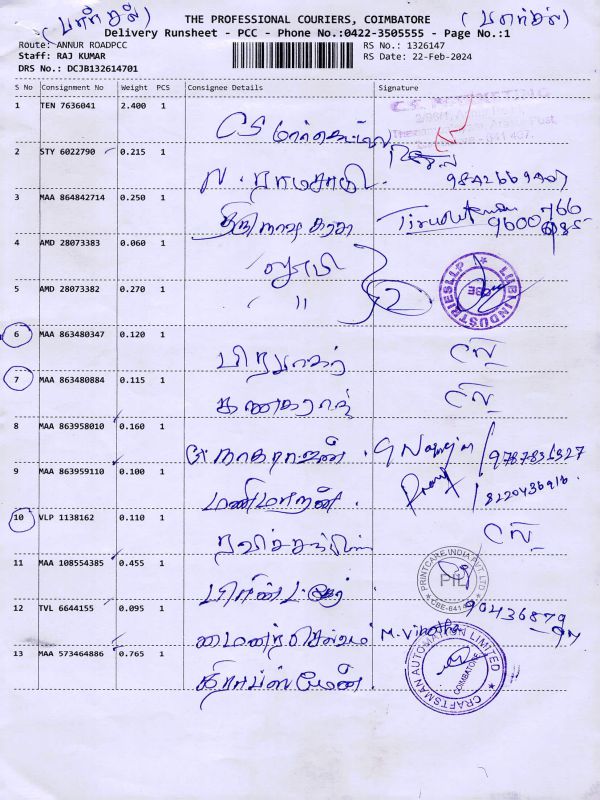 (பார்சல்) THE PROFESSIONAL COURIERS, COIMBATORE (பார்சல்)
Delivery Runsheet - PCC - Phone No.:0422-3505555 - Page No.:1
Route: ANNUR ROADPCC RS No.: 1326147
Staff: RAJ KUMAR RS Date: 22-Feb-2024
DRS No.: DCJB132614701
S No Consignment No Weight PCS Consignee Details Signature
1 TEN 7636041 2.400 1 CS மார்கெட்டிங் C.S. MARKETING
2 STY 6022790 0.215 1 N. ராமசாமி
3 MAA 864842714 0.250 1
4 AMD 28073383 0.060 1 லூபி LUBI INDUSTRIES LLP CBE
5 AMD 28073382 0.270 1 " 2
6 MAA 863480347 0.120 1 பிரபாகர்
7 MAA 863480884 0.115 1 கனகராஜ்
8 MAA 863958010 0.160 1 நாகராஜன். G Nagarajan 9787836327
9 MAA 863959110 0.100 1 மணிமாறன். 8220436916
10 VLP 1138162 0.110 1
11 MAA 108554385 0.455 1 பிரிண்ட் கேர் PRINTCARE INDIA PVT LTD PIL
12 TVL 6644155 0.095 1 M. Vinoth 90436879
13 MAA 573464886 0.765 1 கிராப்ஸ்மேன். CRAFTSMAN AUTOMATION LIMITED COIMBATORE